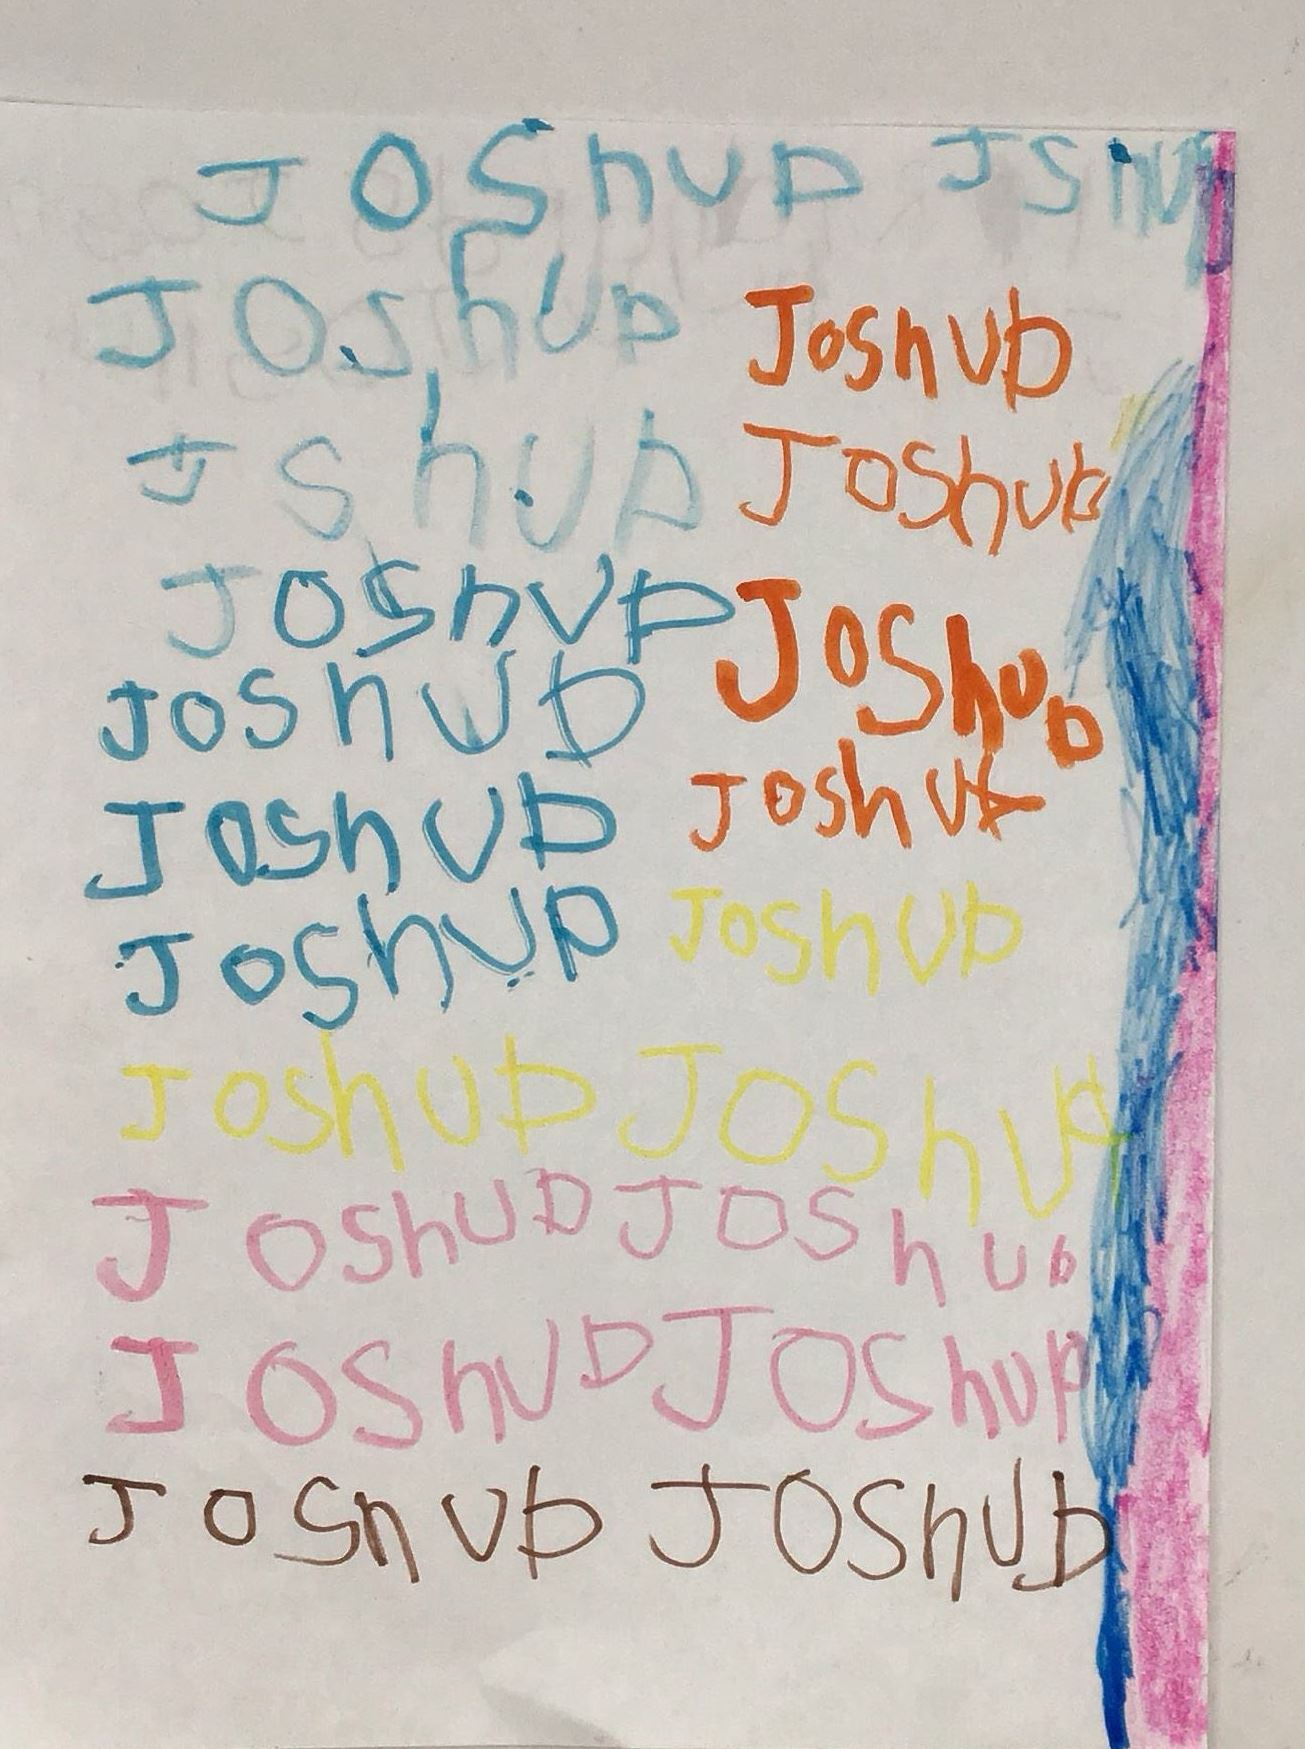 Joshua Jshua
Joshua Joshua
Jshua Joshua
Joshua Joshua
Joshua Joshua
Joshua
Joshua Joshua
Joshua Joshua
Joshua Joshua
Joshua Joshua
Joshua Joshua